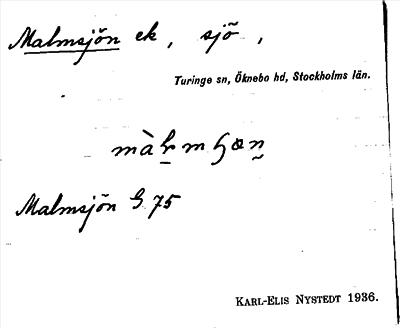 Malmsjön ek, sjö,
Turinge sn, Öknebo hd, Stockholms län.
Malmsjön G. 75
KARL-ELIS NYSTEDT 1936.